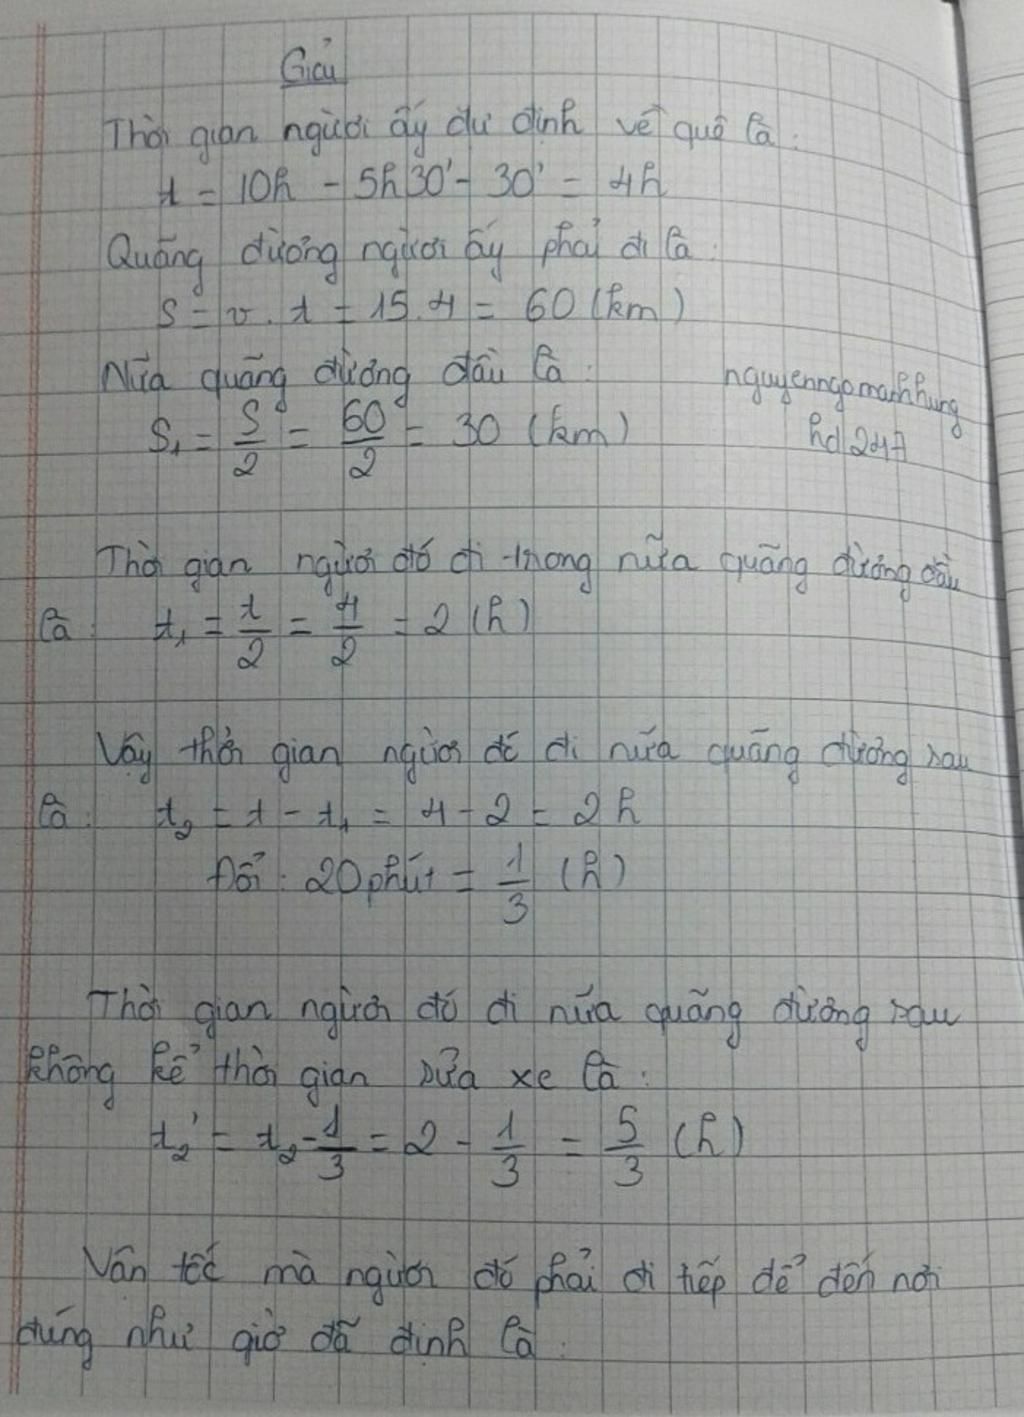 Giải
Thời gian người ấy dự định về quê là:
t = 10h - 5h30' - 30' = 4h
Quãng đường người ấy phải đi là:
S = v. t = 15.4 = 60 (km)
Nửa quãng đường đầu là:
S₁ = S/2 = 60/2 = 30 (km)
nguyenngomanhhung
hd247
Thời gian người đó đi trong nửa quãng đường đầu
là: t₁ = t/2 = 4/2 = 2 (h)
Vậy thời gian người đó đi nửa quãng đường sau
là: t₂ = t - t₁ = 4 - 2 = 2h
Đổi: 20 phút = 1/3 (h)
Thời gian người đó đi nửa quãng đường sau
không kể thời gian sửa xe là:
t₂' = t₂ - 1/3 = 2 - 1/3 = 5/3 (h)
Vân tốc mà người đó phải đi tiếp để đến nơi
đúng như giờ đã định là: